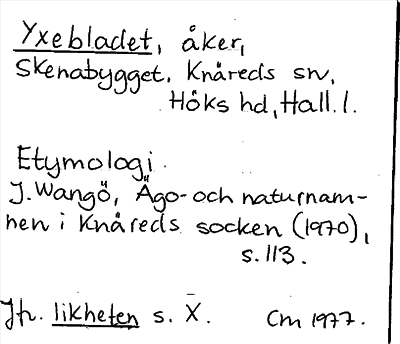 Yxebladet, åker,
Skenabygget, Knäreds sn,
Höks hd, Hall. l.
Etymologi.
J. Wangö, Ägo- och naturnam-
nen i Knäreds socken (1970),
s. 113.
Jfr. likheten s. X.
Cm 1977.